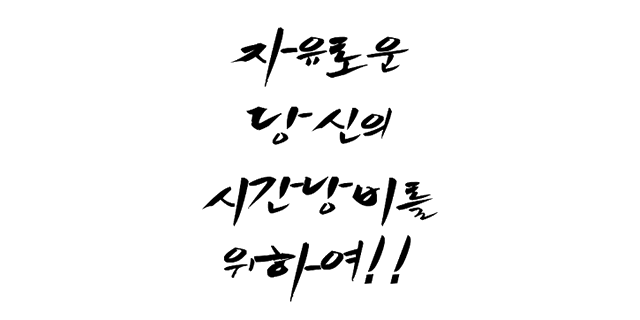 자유로운
당신의
시간낭비를
위하여!!